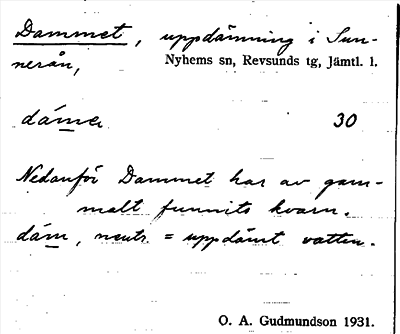 Dammet, uppdämning i Sun-
nerån,
Nyhems sn, Revsunds tg, Jämtl. l.
dámɐ 30
Nedanför Dammet har av gam-
malt funnits kvarn.
dám, neutr. = uppdämt vatten.
O. A. Gudmundson 1931.